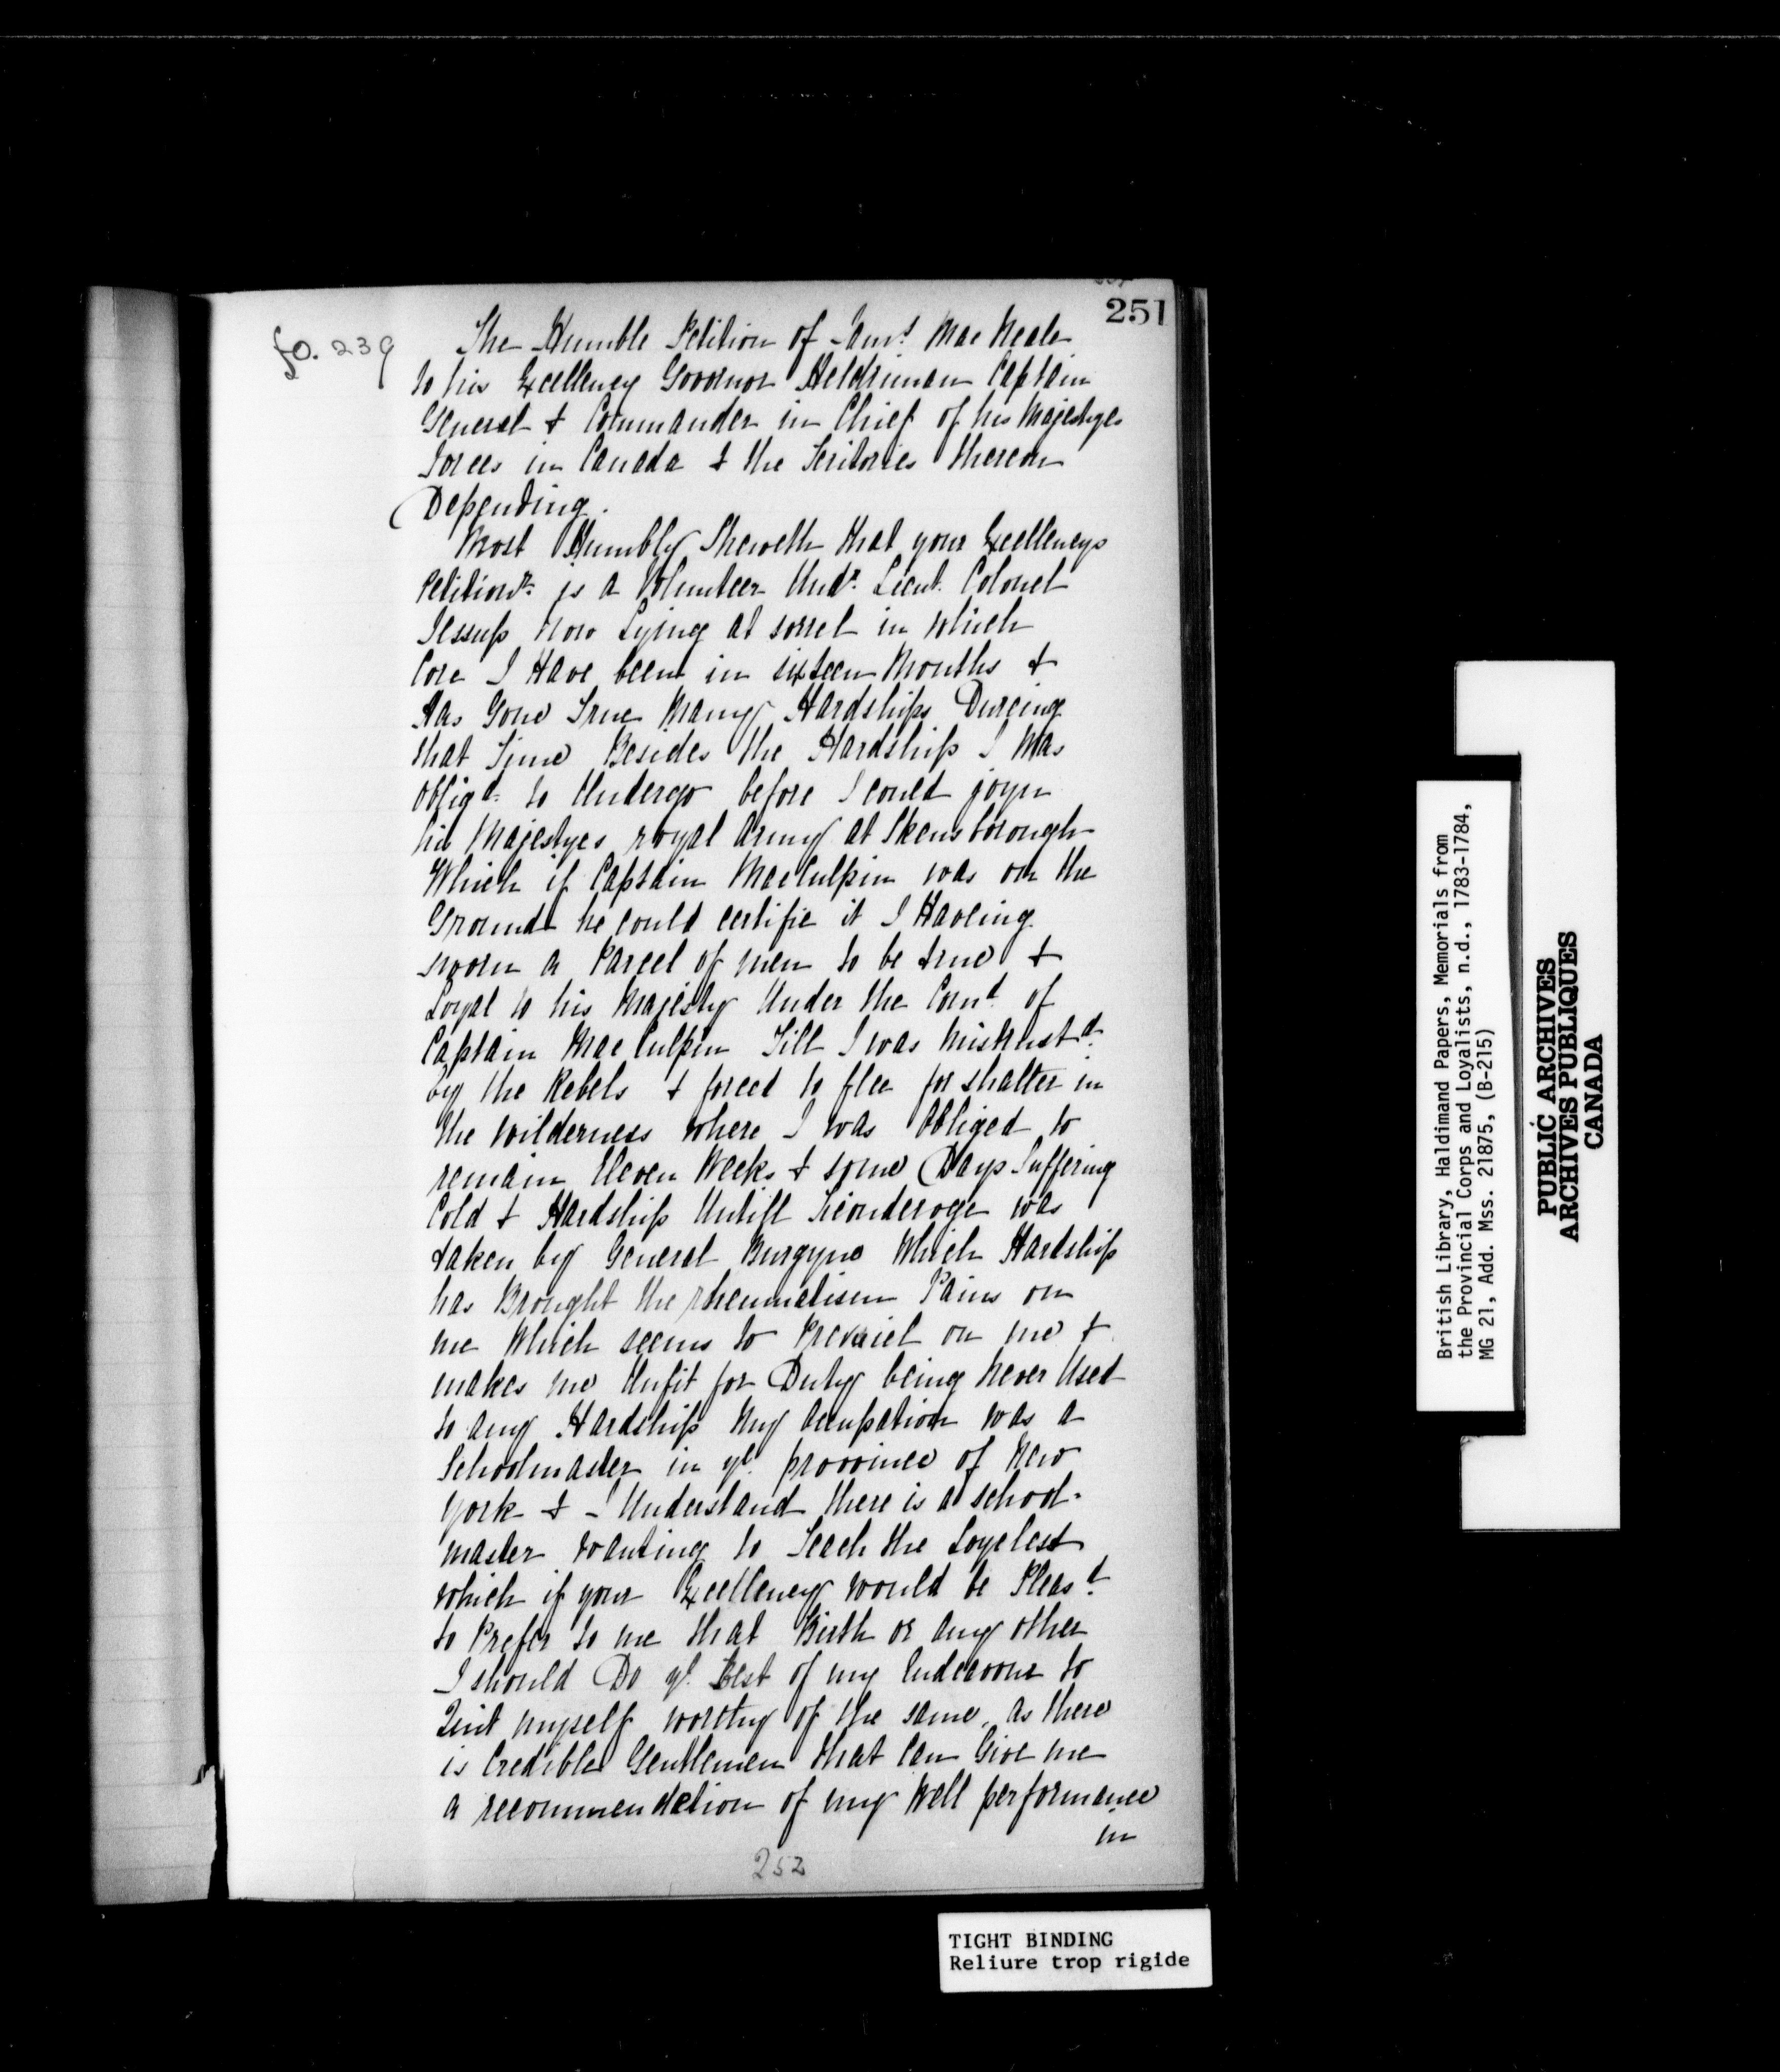 251
fo. 239
The Humble Petition of Jams Mac Neale
to his Excellency Govornor Heldriman Captain
General & Commander in Chief of his Majestyes
Forces in Canada & the Teritories thereon
Depending.
Most Humbly Sheweth that your Excellencys
Petitionr is a Volunteer Undr Lieut. Colonel
Jessup now Lying at sorrel in which
Core I Have been in sixteen Months &
Has Gone True Many Hardships Dureing
that Time Besides the Hardship I Was
obligd to Undergo before I could joyn
his Majestyes royal Army at Skensborough
Which if Captain MacCulpin was on the
Ground he could certifie it I Haveing
sworn a Parcel of men to be true &
Loyal to his Majesty Under the Comd of
Captain Mac Culpin Till I was Mistrustd
by the Rebels & forced to flee for shalter in
the wilderness where I was Obliged to
remain Eleven Weeks & some Days Suffering
Cold & Hardship Untill Ticonderoge was
taken by General Burgyne Which Hardship
has Brought the rheumatisem Pains on
me Which seems to Prevaiel on me &
makes me Unfit for Duty being Never Used
to any Hardship My Accupation was a
Schoolmaster in ye province of New
York & I Understand there is a school-
master wanting to Teach the Loyelest
which if your Excellency would be Pleasd
to Prefer to me that Birth or any other
I should Do ye Best of my Endeavour to
Quit myself worthy of the same, as there
is Credible Gentlemen that can Give me
a recommendation of my Well performance
in
252
TIGHT BINDING
Reliure trop rigide
British Library, Haldimand Papers, Memorials from
the Provincial Corps and Loyalists, n.d., 1783-1784,
MG 21, Add. Mss. 21875, (B-215)
PUBLIC ARCHIVES
ARCHIVES PUBLIQUES
CANADA